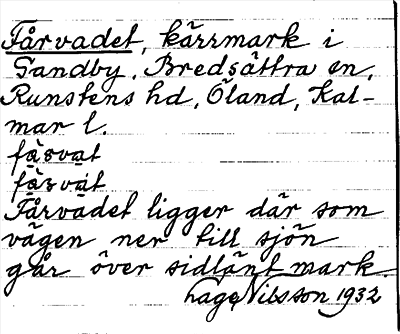 Fårvadet, kärrmark i
Sandby, Bredsättra sn,
Runstens hd, Öland, Kal-
mar l.
fåsvat
fåsvat
Fårvadet ligger där som
vägen ner till sjön
går över sidlänt mark
Lage Nilsson 1932